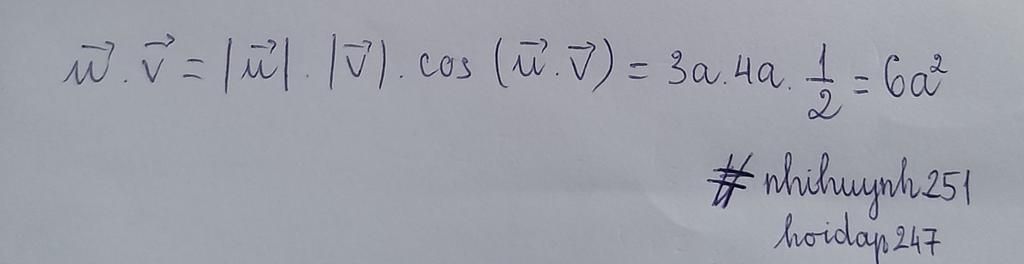 $\vec{u} . \vec{v} = |\vec{u}| . |\vec{v}| . \cos (\vec{u} . \vec{v}) = 3a . 4a . \frac{1}{2} = 6a^2$
# nhihuynh251
hoidap247